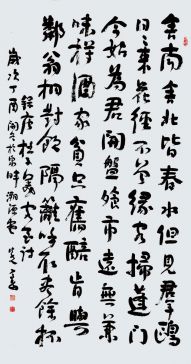 舍南舍北皆春水但見羣鷗
日々來花徑不曾緣客掃蓬門
今始為君開盤飧市遠無兼
味樽酒家貧只舊醅肯與
鄰翁相對飲隔籬呼取盡餘杯
錄唐杜甫客至詩
歲次丁酉